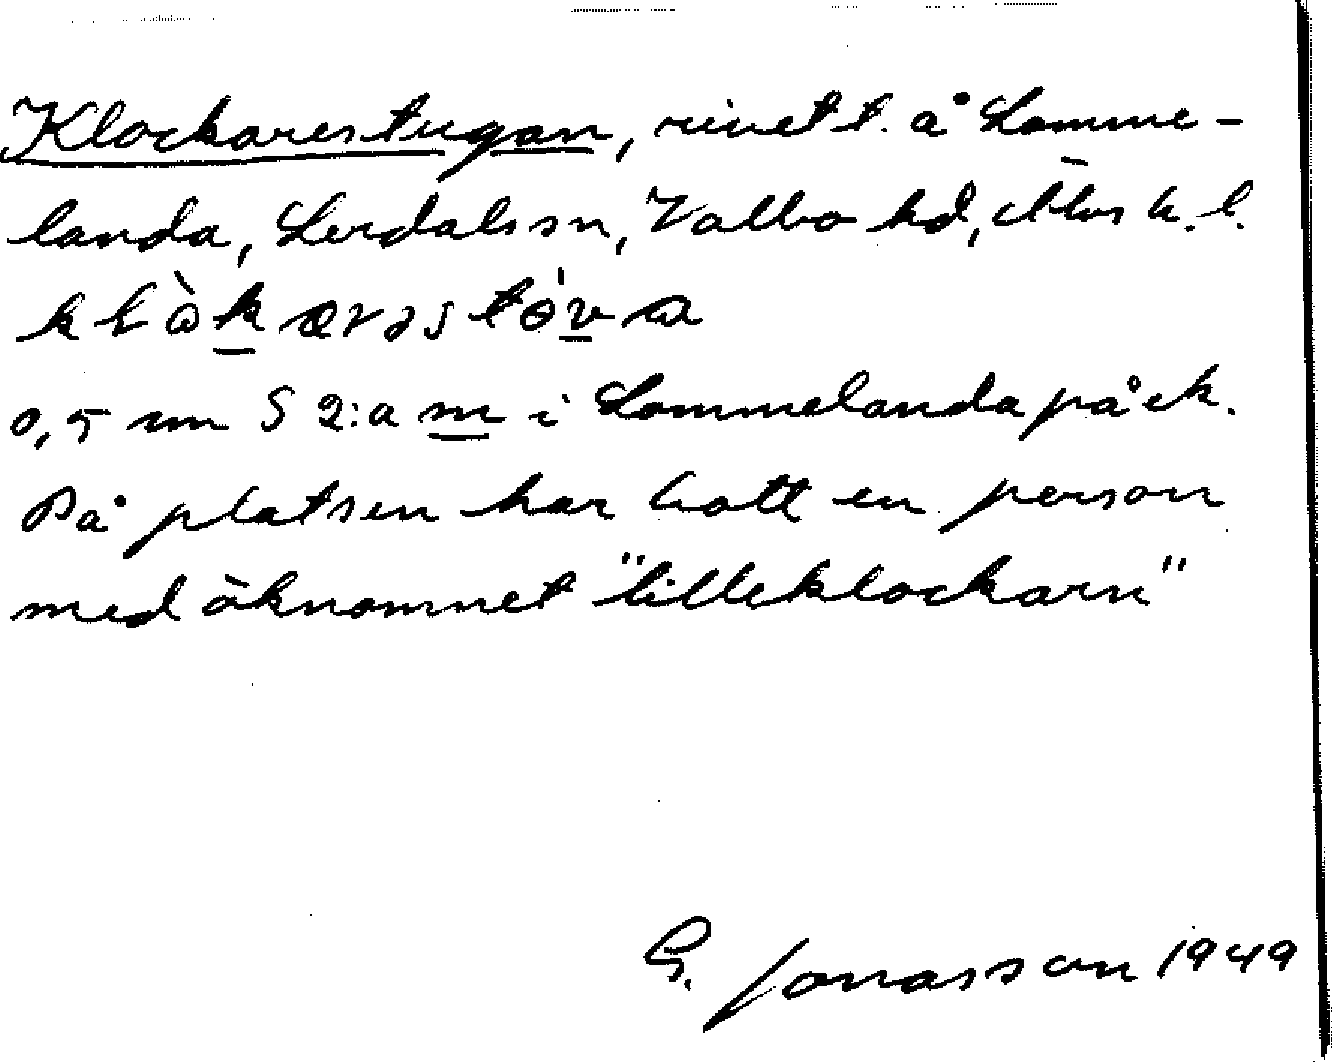 Klockarestugan, rivet t. å Lomme-
landa, Lerdals sn, Valbo hd, Älvs b. l.
0,5 mm S 2:a m i Lommelanda på ek.
På platsen har bott en person
med öknamnet "lilleklockarn"
G. Jonasson 1949